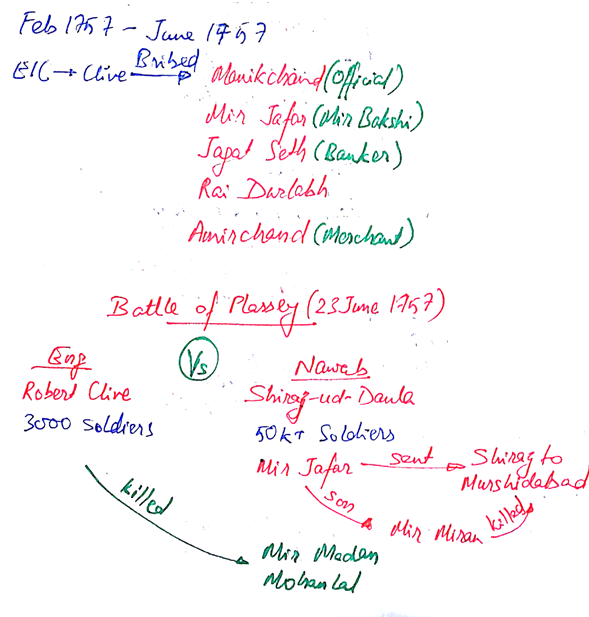 Feb 1757 - June 1757
EIC → Clive Bribed → Manikchand (Official)
Mir Jafar (Mir Bakshi)
Jagat Seth (Banker)
Rai Durlabh
Amirchand (Merchant)
Battle of Plassey (23 June 1757)
Vs
Eng
Robert Clive
3000 Soldiers
Nawab
Shiraj-ud-Daula
50k+ Soldiers
Mir Jafar sent → Shiraj to
Murshidabad
son → Mir Miran killed
killed
Mir Madan
Mohan Lal